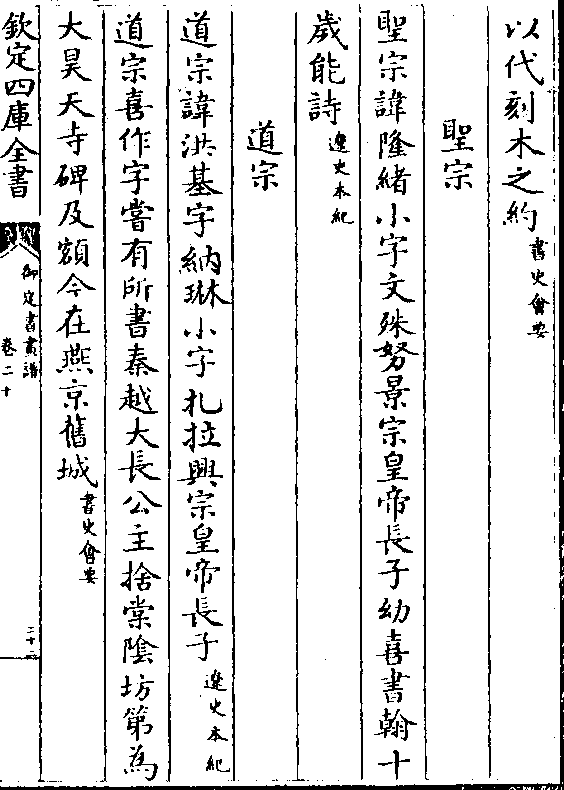 以代刻木之約書史會要
聖宗
聖宗諱隆緒小字文殊努景宗皇帝長子幼喜書翰十
歲能詩遼史本紀
道宗
道宗諱洪基字納琳小字扎拉興宗皇帝長子遼史本紀
道宗喜作字嘗有所書秦越大長公主捨棠陰坊第為
大昊天寺碑及額今在燕京舊城書史會要
欽定四庫全書
御定書畫譜
卷二十